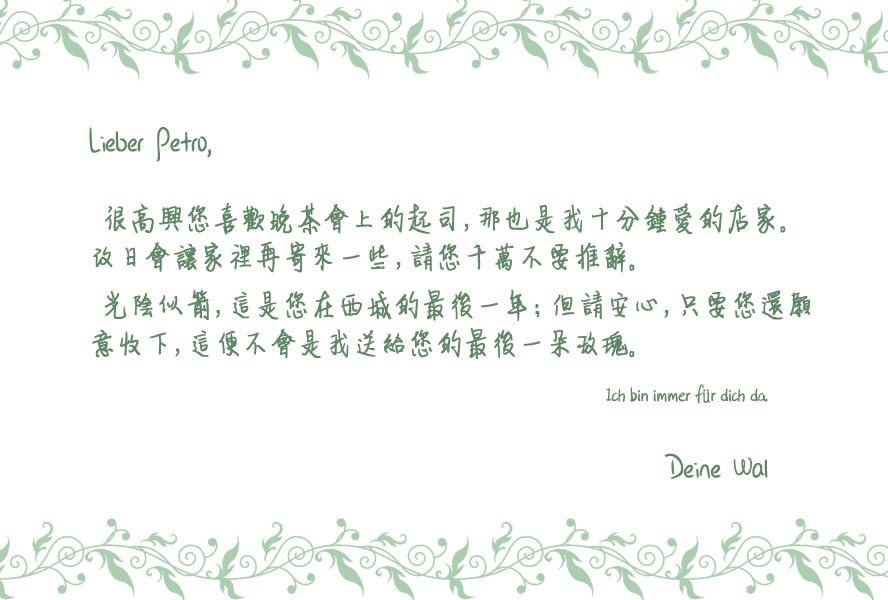 Lieber Petro,
很高興您喜歡晚茶會上的起司,那也是我十分鍾愛的店家。
改日會讓家裡再寄來一些,請您千萬不要推辭。
光陰似箭,這是您在西城的最後一年;但請安心,只要您還願
意收下,這便不會是我送給您的最後一朵玫瑰。
Ich bin immer für dich da.
Deine Wal